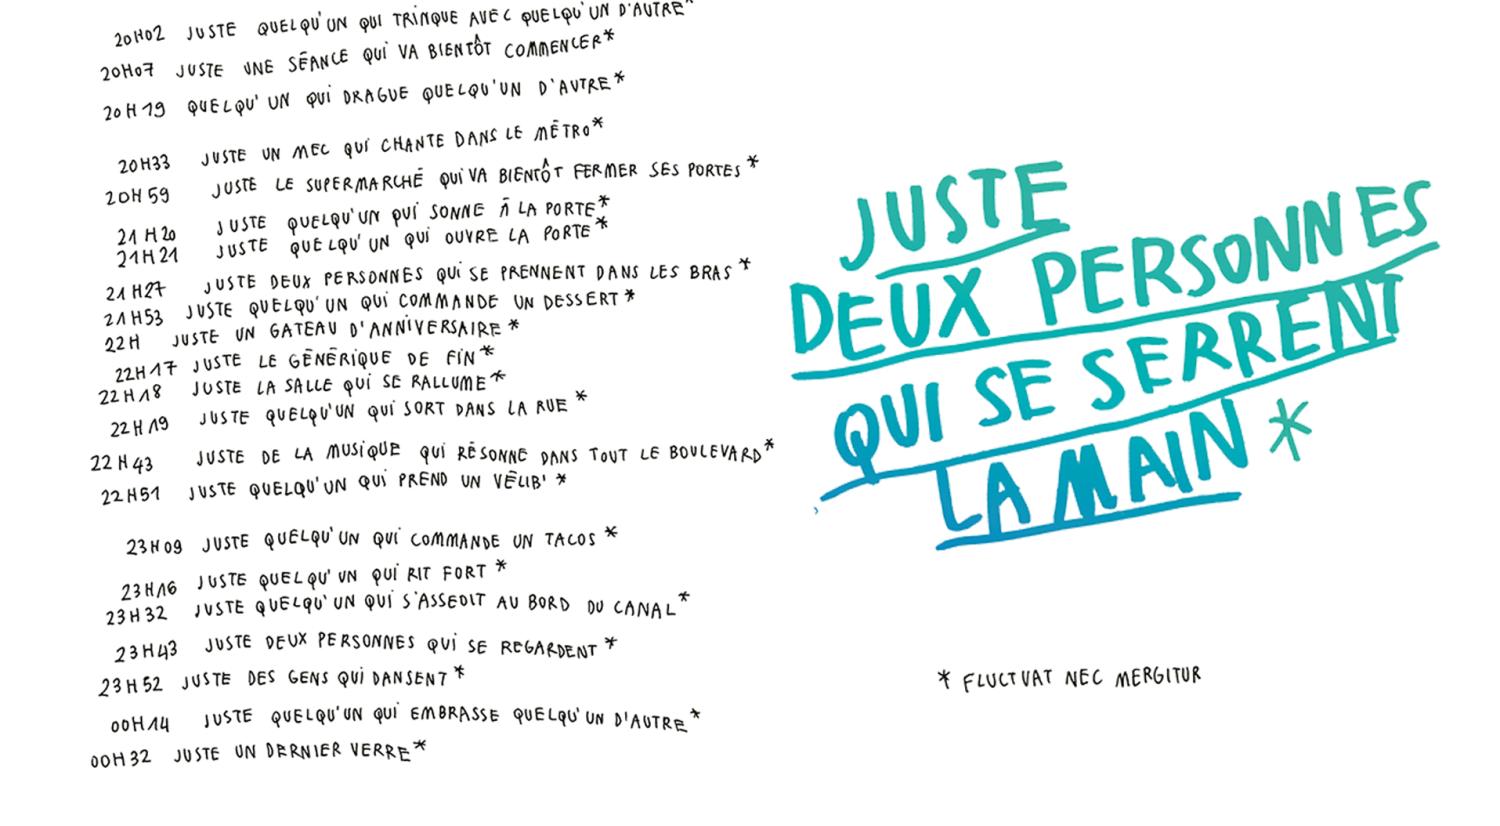 20H02 JUSTE QUELQU'UN QUI TRINQUE AVEC QUELQU'UN D'AUTRE*
20H07 JUSTE UNE SÉANCE QUI VA BIENTÔT COMMENCER*
20H19 QUELQU'UN QUI DRAGUE QUELQU'UN D'AUTRE*
20H33 JUSTE UN MEC QUI CHANTE DANS LE MÉTRO*
20H59 JUSTE LE SUPERMARCHÉ QUI VA BIENTÔT FERMER SES PORTES*
21H20 JUSTE QUELQU'UN QUI SONNE À LA PORTE*
21H21 JUSTE QUELQU'UN QUI OUVRE LA PORTE*
21H27 JUSTE DEUX PERSONNES QUI SE PRENNENT DANS LES BRAS*
21H53 JUSTE QUELQU'UN QUI COMMANDE UN DESSERT*
22H JUSTE UN GATEAU D'ANNIVERSAIRE*
22H17 JUSTE LE GÉNÉRIQUE DE FIN*
22H18 JUSTE LA SALLE QUI SE RALLUME*
22H19 JUSTE QUELQU'UN QUI SORT DANS LA RUE*
22H43 JUSTE DE LA MUSIQUE QUI RÉSONNE DANS TOUT LE BOULEVARD*
22H51 JUSTE QUELQU'UN QUI PREND UN VÉLIB'*
23H09 JUSTE QUELQU'UN QUI COMMANDE UN TACOS*
23H16 JUSTE QUELQU'UN QUI RIT FORT*
23H32 JUSTE QUELQU'UN QUI S'ASSEOIT AU BORD DU CANAL*
23H43 JUSTE DEUX PERSONNES QUI SE REGARDENT*
23H52 JUSTE DES GENS QUI DANSENT*
00H14 JUSTE QUELQU'UN QUI EMBRASSE QUELQU'UN D'AUTRE*
00H32 JUSTE UN DERNIER VERRE*
JUSTE
DEUX PERSONNES
QUI SE SERRENT
LA MAIN*
* FLUCTUAT NEC MERGITUR